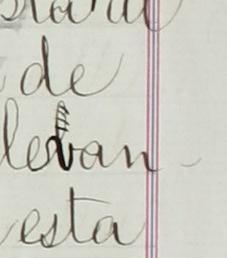 de
levan-
esta